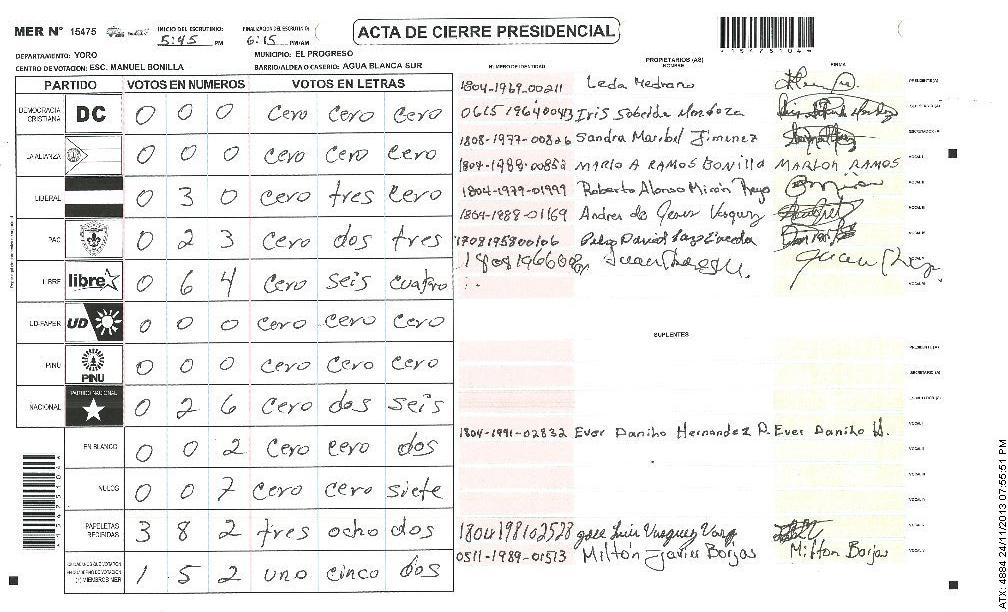 MER N° 15475 INICIO DEL ESCRUTINIO: 5:45 PM FINALIZACION DEL ESCRUTINIO: 6:15 PM/AM
ACTA DE CIERRE PRESIDENCIAL
DEPARTAMENTO: YORO MUNICIPIO: EL PROGRESO
CENTRO DE VOTACION: ESC. MANUEL BONILLA BARRIO/ALDEA O CASERIO: AGUA BLANCA SUR
PARTIDO VOTOS EN NUMEROS VOTOS EN LETRAS
DEMOCRACIA CRISTIANA DC 0 0 0 cero cero cero
LA ALIANZA 0 0 0 cero cero cero
LIBERAL 0 3 0 cero tres cero
PAC 0 2 3 cero dos tres
LIBRE libre 0 6 4 cero seis cuatro
UD-FAPER UD 0 0 0 cero cero cero
PINU PINU 0 0 0 cero cero cero
NACIONAL PARTIDO NACIONAL 0 2 6 cero dos seis
EN BLANCO 0 0 2 cero cero dos
NULOS 0 0 7 cero cero siete
PAPELETAS RECIBIDAS 3 8 2 tres ocho dos
MIEMBROS MER 1 5 2 uno cinco dos
PROPIETARIOS (AS)
NUMERO DE IDENTIDAD NOMBRE FIRMA
1804-1969-00211 Leda Medrano
0615 19640043 Iris Mendoza
1808-1977-00826 Sandra Maribel Jimenez
1804-1988-00852 MARLO A RAMOS BONILLA MARLON RAMOS
1804-1979-01999 Roberto Alonso Mirón
1804-1988-01169 Andres de Jesus Vasquez
1708195800106 David
SUPLENTES
1804-1991-02832 Ever Danilo Hernandez P. Ever Danilo H.
1804198102528 jose Luis Vasquez
0511-1989-01513 Milton Javier Borjas Milton Borjas
ATX: 4884 24/11/2013 07:55:51 PM